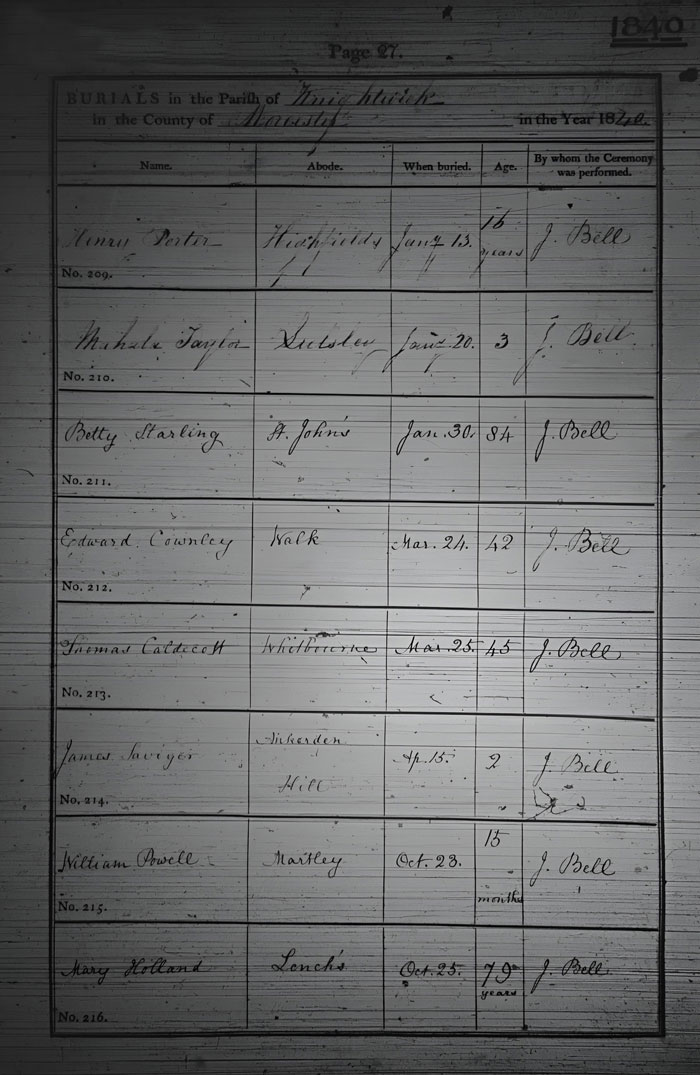 1840
Page 27.
BURIALS in the Parish of Knightwick
in the County of Worcester in the Year 1840.
Name. Abode. When buried. Age. By whom the Ceremony was performed.
Henry Porter Highfields Jany 13. 16 years J. Bell
No. 209.
Taylor Jany 20. 3 J. Bell
No. 210.
Betty Starling St. John's Jan. 30. 84 J. Bell
No. 211.
Edward Cownley Walk Mar. 24. 42 J. Bell
No. 212.
Thomas Caldecott Whitbourne Mar. 25 45 J. Bell
No. 213.
James Ankerden Hill Ap. 15. 2 J. Bell
No. 214.
William Powell Martley Oct. 23. 15 months J. Bell
No. 215.
Mary Holland Lench's Oct. 25. 79 years J. Bell
No. 216.